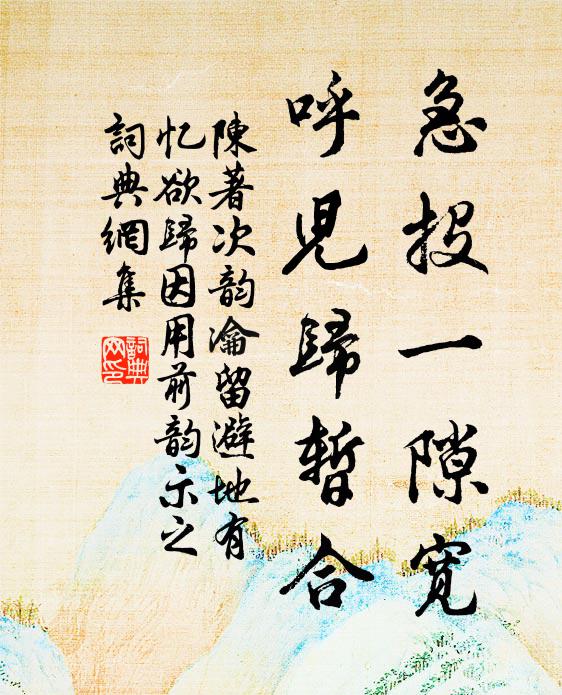 急投一隙寬
呼児歸暫合
陳著次韵瀹留避地有
忆欲歸因用前韵示之
詞典網集
詞典網印